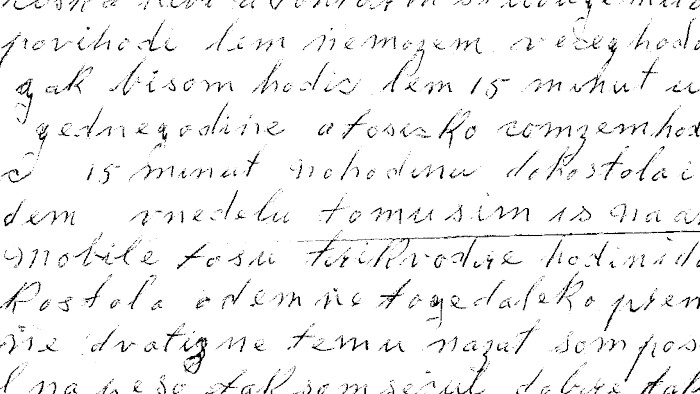 povihode lem nemozem vezeghodi
gak bisom hodic lem 15 minut u
gednegodine atosizko comzemhod
c 15 minut nahodinu dokostola i
dem vnedelu tomusim is na a
mobile tosu trikvodre hodini
kostola odem netogedaleko prem
me dvatizne temu nazat som pos
l na peso tak som secul dobre tak